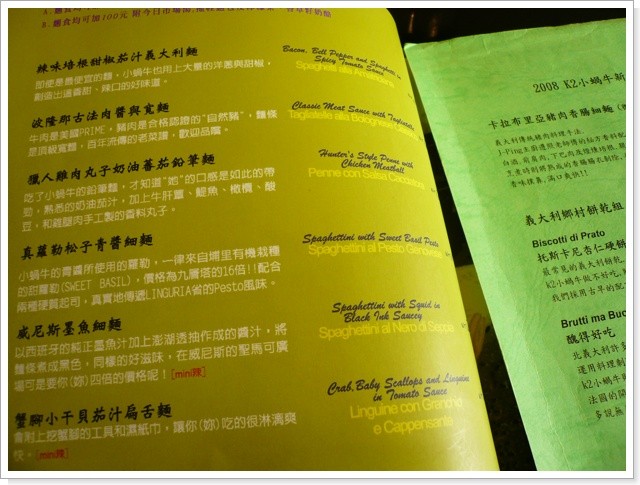 辣味培根甜椒茄汁義大利麵
即使是最便宜的麵,小蝸牛也用上大量的洋蔥與甜椒,
創造出這香甜、辣口的好味道。
Bacon, Bell Pepper and Spaghetti in
Spicy Tomato Sauce
波隆那古法肉醬與寬麵
牛肉是美國PRIME,豬肉是合格認證的"自然豬",麵條
是頂級寬麵,百年流傳的老菜譜,歡迎品嚐。
Classic Meat Sauce with Tagliatelle
獵人雞肉丸子奶油蕃茄鉛筆麵
吃了小蝸牛的鉛筆麵,才知道"她"的口感是如此的帶
勁,熟悉的奶油茄汁,加上牛肝蕈、鯷魚、橄欖、酸
豆,和雞腿肉手工製的香料丸子。
Hunter's Style Penne with
Chicken Meatball
真蘿勒松子青醬細麵
小蝸牛的青醬所使用的蘿勒,一律來自埔里有機栽種
的甜蘿勒(SWEET BASIL),價格為九層塔的16倍!!配合
兩種硬質起司,真實地傳遞LINGURIA省的Pesto風味。
Spaghettini with Sweet Basil Pesto
Spaghettini al Pesto Genovese
威尼斯墨魚細麵
以西班牙的純正墨魚汁加上澎湖透抽作成的醬汁,將
麵條煮成黑色,同樣的好滋味,在威尼斯的聖馬可廣
場可是要你(妳)四倍的價格呢![mini辣]
Spaghettini with Squid in
Black Ink Saucey
Spaghettini al Nero di Seppia
蟹腳小干貝茄汁扁舌麵
會附上挖蟹腳的工具和濕紙巾,讓你(妳)吃的很淋漓爽
快。[mini辣]
Crab, Baby Scallops and Linguine
in Tomato Sauce
Linguine con Granchio
e Cappensante
2008 K2小蝸牛新
卡拉布里亞豬肉香腸細麵
義大利傳統豬肉料理手法
義大利鄉村餅乾組
Biscotti di Prato
托斯卡尼杏仁硬餅
最常見的義大利餅乾
k2小蝸牛做不好吃
我們採用古早的配
Brutti ma Buo
醜得好吃
北義大利許多
運用料理制
k2小蝸牛的
法國的閒
多說無